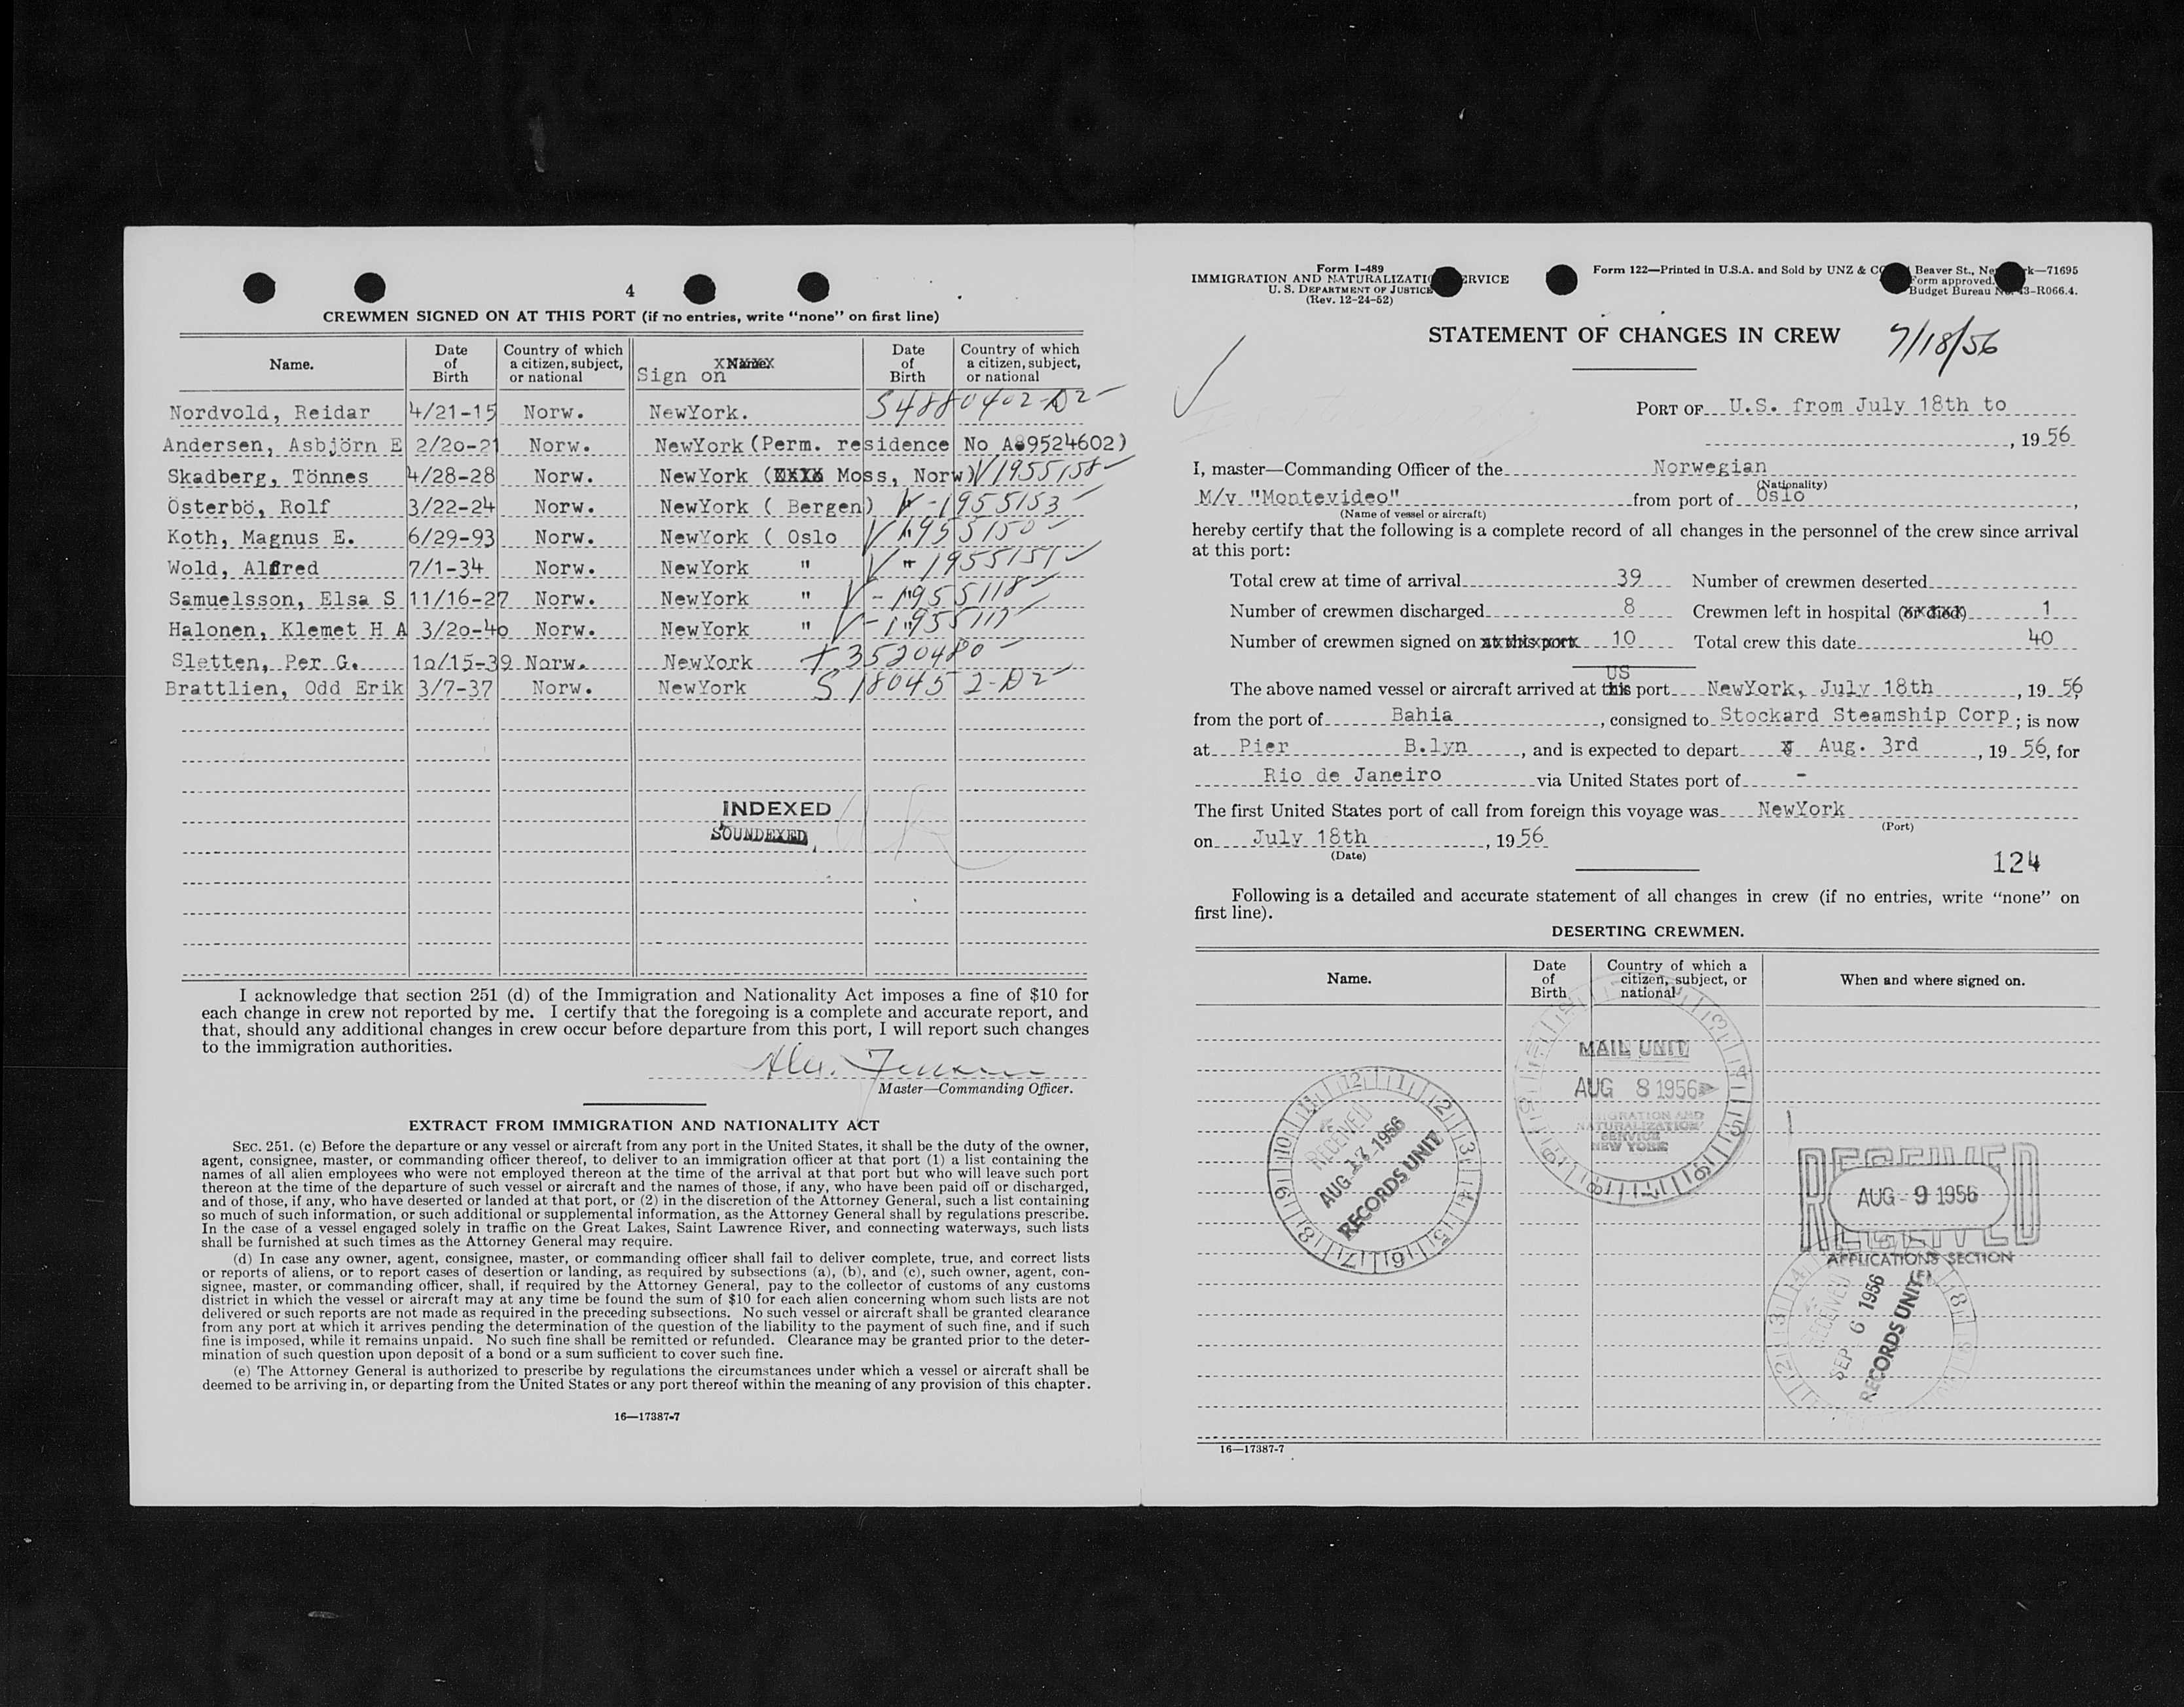 4
CREWMEN SIGNED ON AT THIS PORT (if no entries, write “none” on first line)
Name. Date of Birth Country of which a citizen, subject, or national XNameX Sign on Date of Birth Country of which a citizen, subject, or national
Nordvold, Reidar 4/21-15 Norw. NewYork. S4880402-D2
Andersen, Asbjörn E 2/20-21 Norw. NewYork (Perm. residence No A89524602)
Skadberg, Tönnes 4/28-28 Norw. NewYork (XXXX Moss, Norw) V1955158
Österbö, Rolf 3/22-24 Norw. NewYork ( Bergen) V-1955153
Koth, Magnus E. 6/29-93 Norw. NewYork ( Oslo V "1955150
Wold, Alfred 7/1-34 Norw. NewYork " V " 1955151
Samuelsson, Elsa S 11/16-27 Norw. NewYork " V - 1955118
Halonen, Klemet H A 3/20-40 Norw. NewYork " V - 1955117
Sletten, Per G. 10/15-39 Norw. NewYork + 3520480
Brattlien, Odd Erik 3/7-37 Norw. NewYork S 180452-D2
INDEXED
SOUNDEXED
I acknowledge that section 251 (d) of the Immigration and Nationality Act imposes a fine of $10 for
each change in crew not reported by me. I certify that the foregoing is a complete and accurate report, and
that, should any additional changes in crew occur before departure from this port, I will report such changes
to the immigration authorities.
Master—Commanding Officer.
EXTRACT FROM IMMIGRATION AND NATIONALITY ACT
SEC. 251. (c) Before the departure or any vessel or aircraft from any port in the United States, it shall be the duty of the owner,
agent, consignee, master, or commanding officer thereof, to deliver to an immigration officer at that port (1) a list containing the
names of all alien employees who were not employed thereon at the time of the arrival at that port but who will leave such port
thereon at the time of the departure of such vessel or aircraft and the names of those, if any, who have been paid off or discharged,
and of those, if any, who have deserted or landed at that port, or (2) in the discretion of the Attorney General, such a list containing
so much of such information, or such additional or supplemental information, as the Attorney General shall by regulations prescribe.
In the case of a vessel engaged solely in traffic on the Great Lakes, Saint Lawrence River, and connecting waterways, such lists
shall be furnished at such times as the Attorney General may require.
(d) In case any owner, agent, consignee, master, or commanding officer shall fail to deliver complete, true, and correct lists
or reports of aliens, or to report cases of desertion or landing, as required by subsections (a), (b), and (c), such owner, agent, con-
signee, master, or commanding officer, shall, if required by the Attorney General, pay to the collector of customs of any customs
district in which the vessel or aircraft may at any time be found the sum of $10 for each alien concerning whom such lists are not
delivered or such reports are not made as required in the preceding subsections. No such vessel or aircraft shall be granted clearance
from any port at which it arrives pending the determination of the question of the liability to the payment of such fine, and if such
fine is imposed, while it remains unpaid. No such fine shall be remitted or refunded. Clearance may be granted prior to the deter-
mination of such question upon deposit of a bond or a sum sufficient to cover such fine.
(e) The Attorney General is authorized to prescribe by regulations the circumstances under which a vessel or aircraft shall be
deemed to be arriving in, or departing from the United States or any port thereof within the meaning of any provision of this chapter.
16—17387-7
Form I-489
IMMIGRATION AND NATURALIZATION SERVICE
U. S. DEPARTMENT OF JUSTICE
(Rev. 12-24-52)
Form 122—Printed in U.S.A. and Sold by UNZ & CO Beaver St., New York—71695
Form approved.
Budget Bureau No. 43-R066.4.
STATEMENT OF CHANGES IN CREW
7/18/56
PORT OF U.S. from July 18th to
, 19 56
I, master—Commanding Officer of the Norwegian
(Nationality)
M/v "Montevideo" from port of Oslo,
(Name of vessel or aircraft)
hereby certify that the following is a complete record of all changes in the personnel of the crew since arrival
at this port:
Total crew at time of arrival 39 Number of crewmen deserted
Number of crewmen discharged 8 Crewmen left in hospital (or died) 1
Number of crewmen signed on at this port 10 Total crew this date 40
The above named vessel or aircraft arrived at this US port NewYork, July 18th, 19 56,
from the port of Bahia, consigned to Stockard Steamship Corp; is now
at Pier B.lyn, and is expected to depart Aug. 3rd, 19 56, for
Rio de Janeiro via United States port of -
The first United States port of call from foreign this voyage was NewYork
(Port)
on July 18th, 19 56
(Date)
124
Following is a detailed and accurate statement of all changes in crew (if no entries, write “none” on
first line).
DESERTING CREWMEN.
Name. Date of Birth Country of which a citizen, subject, or national When and where signed on.
MAIL UNIT
AUG 8 1956
IMMIGRATION AND
NATURALIZATION
SERVICE
NEW YORK
RECEIVED
AUG 17 1956
RECORDS UNIT
RECEIVED
AUG - 9 1956
APPLICATIONS SECTION
RECEIVED
SEP 6 1956
RECORDS UNIT
16—17387-7